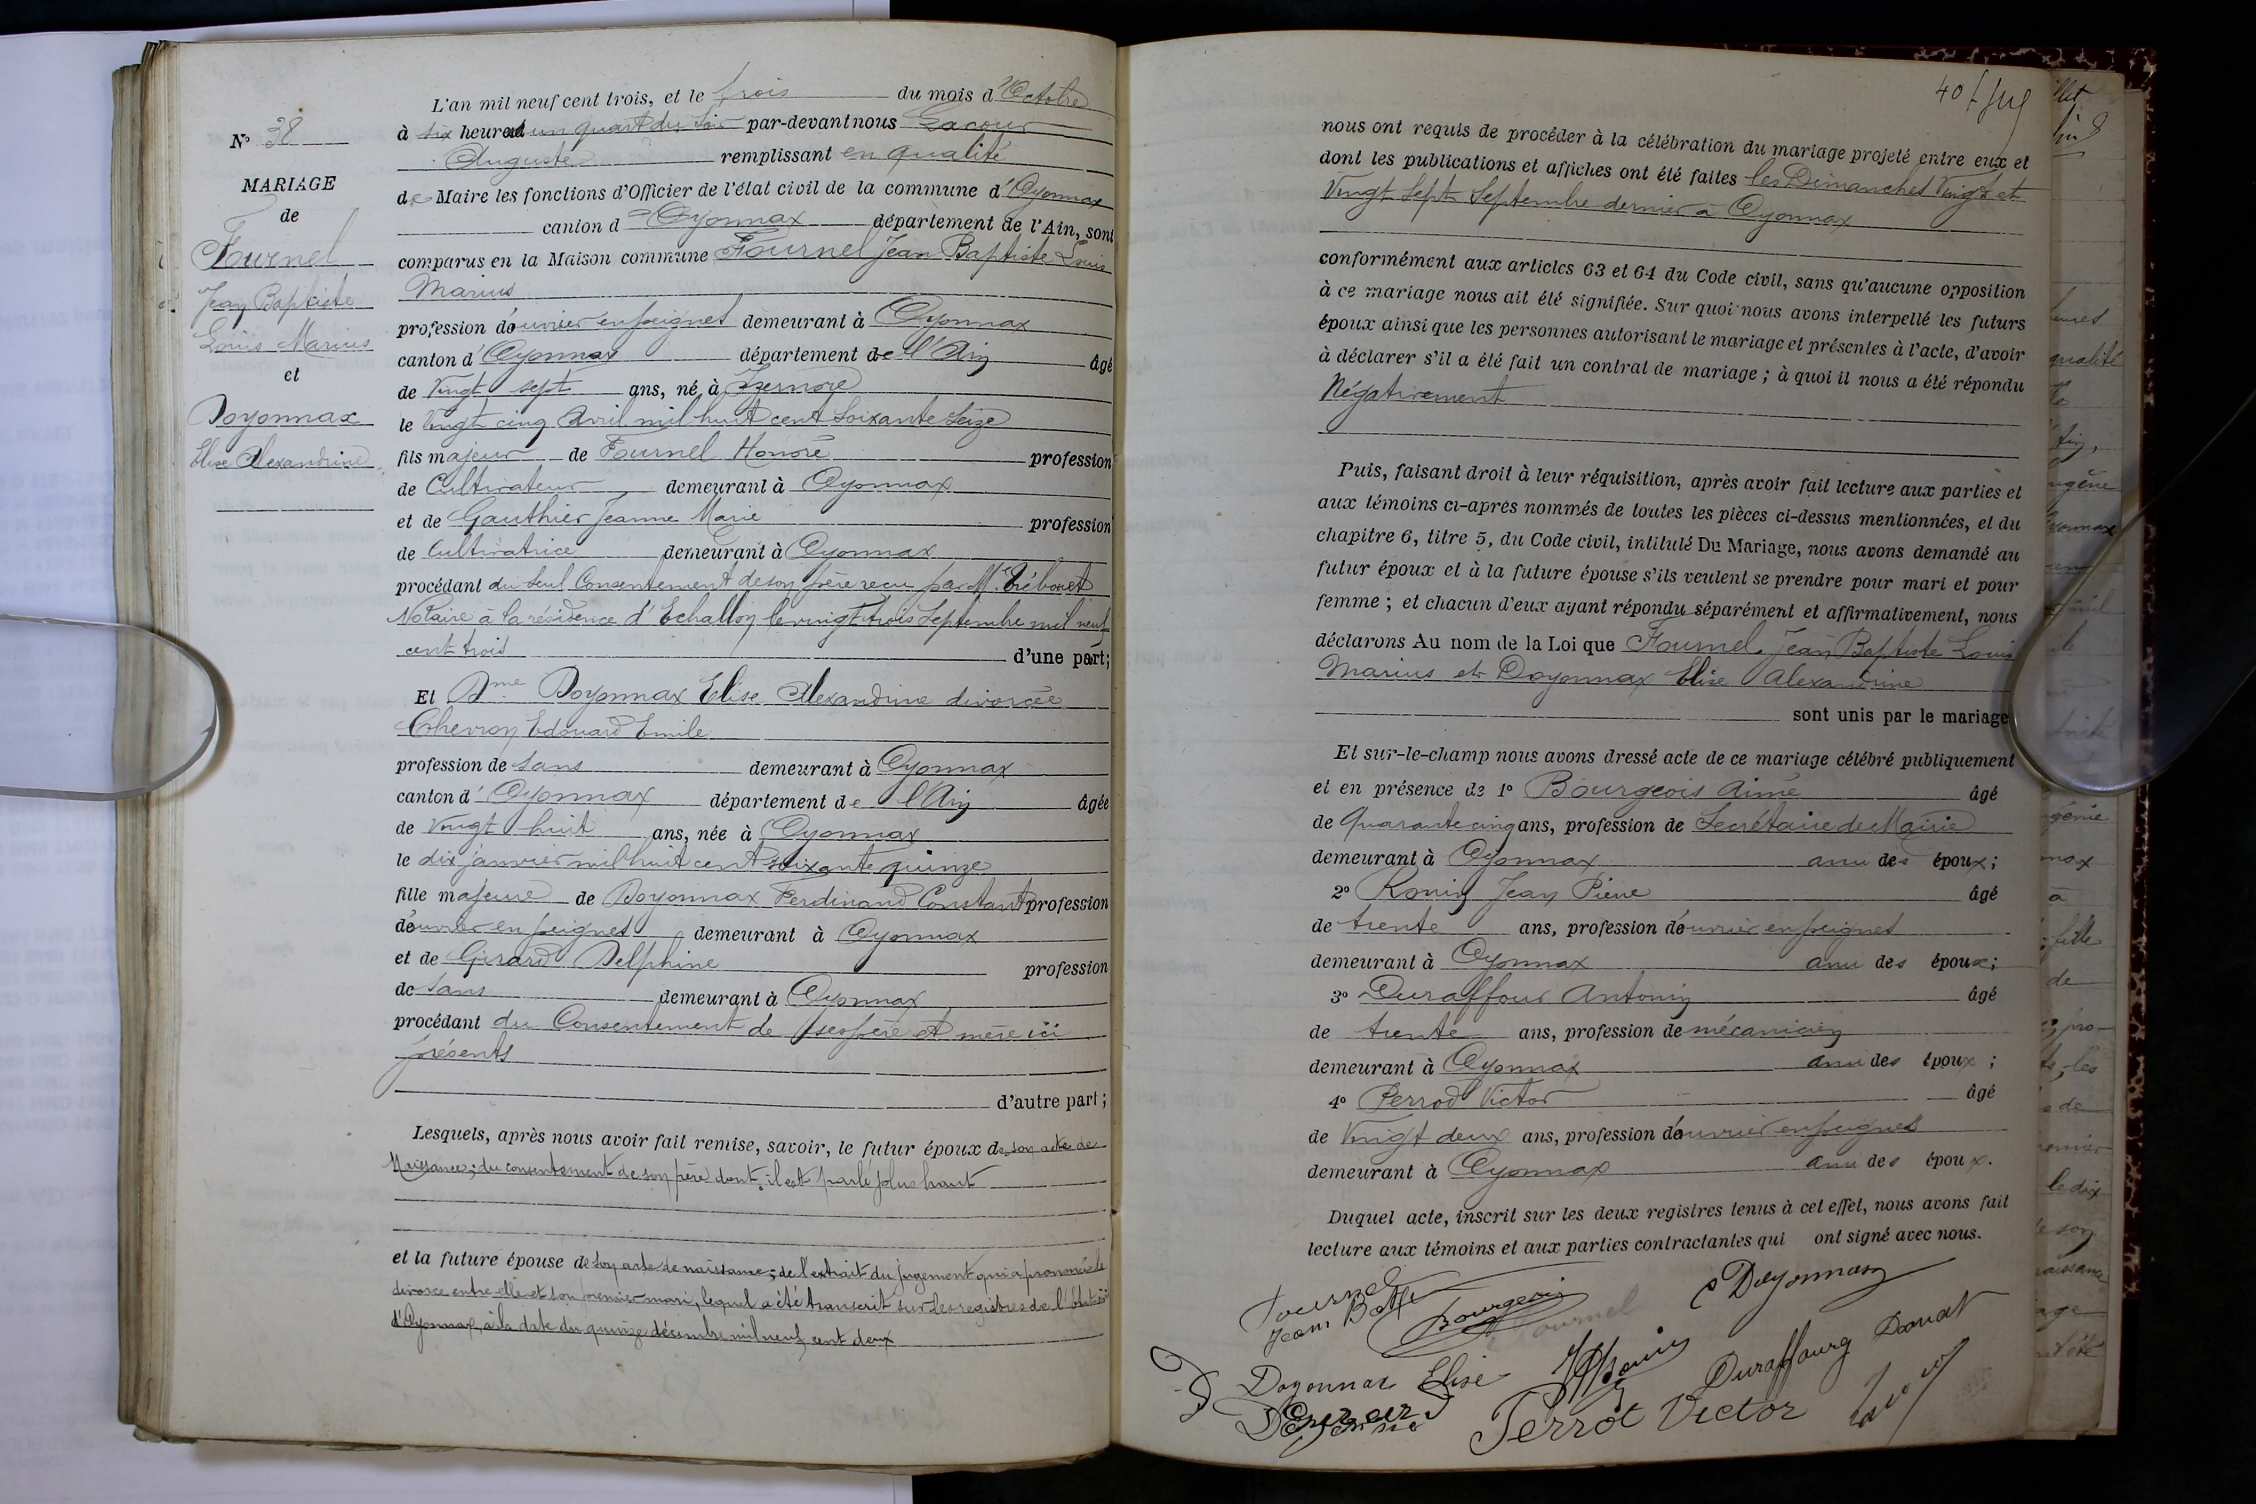 N° 38
MARIAGE
de
Fournel
Jean Baptiste
Louis Marius
et
Doyonnax
Elise Alexandrine
L'an mil neuf cent trois, et le trois du mois d'Octobre
à six heures et un quart du soir par-devant nous Lacour
Auguste remplissant en qualité
de Maire les fonctions d'Officier de l'état civil de la commune d'Oyonnax
canton d'Oyonnax département de l'Ain, sont
comparus en la Maison commune Fournel Jean Baptiste Louis
Marius
profession d'ouvrier en peignes demeurant à Oyonnax
canton d'Oyonnax département de l'Ain âgé
de Vingt sept ans, né à Izernore
le Vingt cinq Avril mil huit cent soixante seize
fils majeur de Fournel Honoré profession
de Cultivateur demeurant à Oyonnax
et de Gauthier Jeanne Marie profession
de Cultivatrice demeurant à Oyonnax
procédant du seul Consentement de son père reçu par Me
Notaire à la résidence d'Echallon le vingt trois Septembre mil neuf
cent trois d'une part;
Et Dme Doyonnax Elise Alexandrine divorcée
Chevron Edouard Emile
profession de sans demeurant à Oyonnax
canton d'Oyonnax département de l'Ain âgée
de Vingt huit ans, née à Oyonnax
le dix janvier mil huit cent soixante quinze
fille majeure de Doyonnax Ferdinand Constant profession
d'ouvrier en peignes demeurant à Oyonnax
et de Girard Delphine profession
de sans demeurant à Oyonnax
procédant du Consentement de ses père et mère ici
présents
d'autre part;
Lesquels, après nous avoir fait remise, savoir, le futur époux de son acte de
Naissance; du consentement de son père dont il est parlé plus haut
et la future épouse de son acte de naissance; de l'extrait du jugement qui a prononcé le
divorce entre elle et son premier mari, lequel a été transcrit sur les registres de l'état civil
d'Oyonnax, à la date du quinze décembre mil neuf cent deux
40
nous ont requis de procéder à la célébration du mariage projeté entre eux et
dont les publications et affiches ont été faites les Dimanches Vingt et
Vingt Sept Septembre dernier à Oyonnax
conformément aux articles 63 et 64 du Code civil, sans qu'aucune opposition
à ce mariage nous ait été signifiée. Sur quoi nous avons interpellé les futurs
époux ainsi que les personnes autorisant le mariage et présentes à l'acte, d'avoir
à déclarer s'il a été fait un contrat de mariage; à quoi il nous a été répondu
Négativement
Puis, faisant droit à leur réquisition, après avoir fait lecture aux parties et
aux témoins ci-après nommés de toutes les pièces ci-dessus mentionnées, et du
chapitre 6, titre 5, du Code civil, intitulé Du Mariage, nous avons demandé au
futur époux et à la future épouse s'ils veulent se prendre pour mari et pour
femme; et chacun d'eux ayant répondu séparément et affirmativement, nous
déclarons Au nom de la Loi que Fournel Jean Baptiste Louis
Marius et Doyonnax Elise Alexandrine
sont unis par le mariage
Et sur-le-champ nous avons dressé acte de ce mariage célébré publiquement
et en présence de 1° Bourgeois Aimé âgé
de Quarante cinq ans, profession de Secrétaire de Mairie
demeurant à Oyonnax ami des époux;
2° Jean Pierre âgé
de trente ans, profession d'ouvrier en peignes
demeurant à Oyonnax ami des époux;
3° Duraffour Antonin âgé
de trente ans, profession de mécanicien
demeurant à Oyonnax ami des époux;
4° Perrod Victor âgé
de Vingt deux ans, profession d'ouvrier en peignes
demeurant à Oyonnax ami des époux.
Duquel acte, inscrit sur les deux registres tenus à cet effet, nous avons fait
lecture aux témoins et aux parties contractantes qui ont signé avec nous.
Fournel
Jean Btte
Bourgeois
Doyonnax
Doyonnax Elise
Duraffourg
Perrot Victor